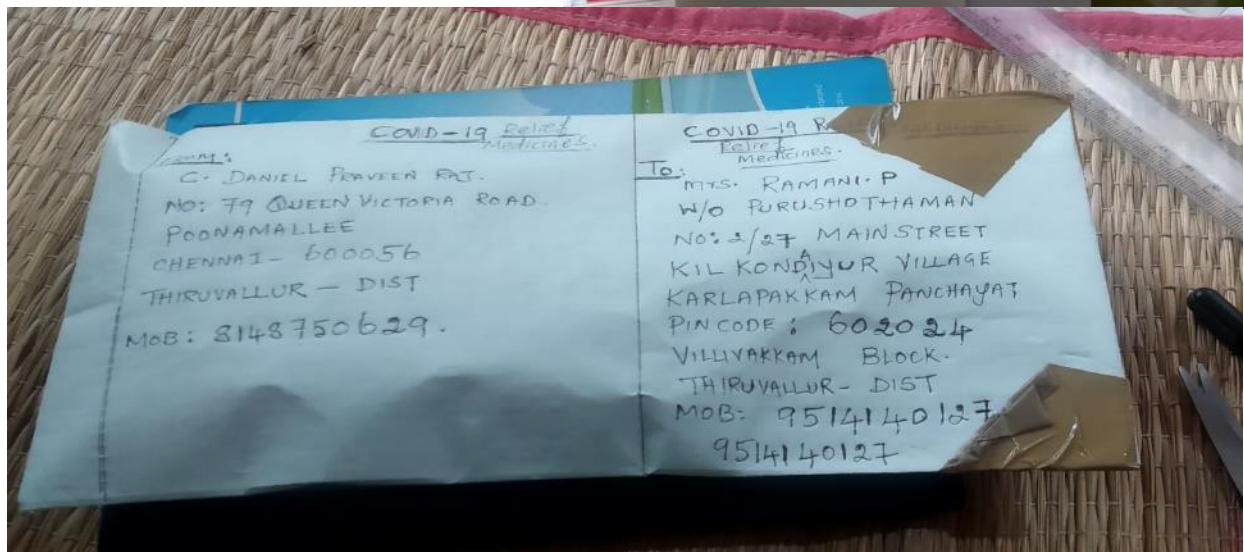 COVID-19 Relief
Medicines.
FROM:
C. DANIEL PRAVEEN RAJ.
NO: 79 QUEEN VICTORIA ROAD.
POONAMALLEE
CHENNAI - 600056
THIRUVALLUR - DIST
MOB: 8148750629.
COVID-19
Relief
Medicines.
To:
Mrs. RAMANI. P
W/O PURUSHOTHAMAN
NO: 2/27 MAIN STREET
KIL KONDAIYUR VILLAGE
KARLAPAKKAM PANCHAYAT
PINCODE: 602024
VILLIVAKKAM BLOCK.
THIRUVALLUR - DIST
MOB: 9514140127
9514140127